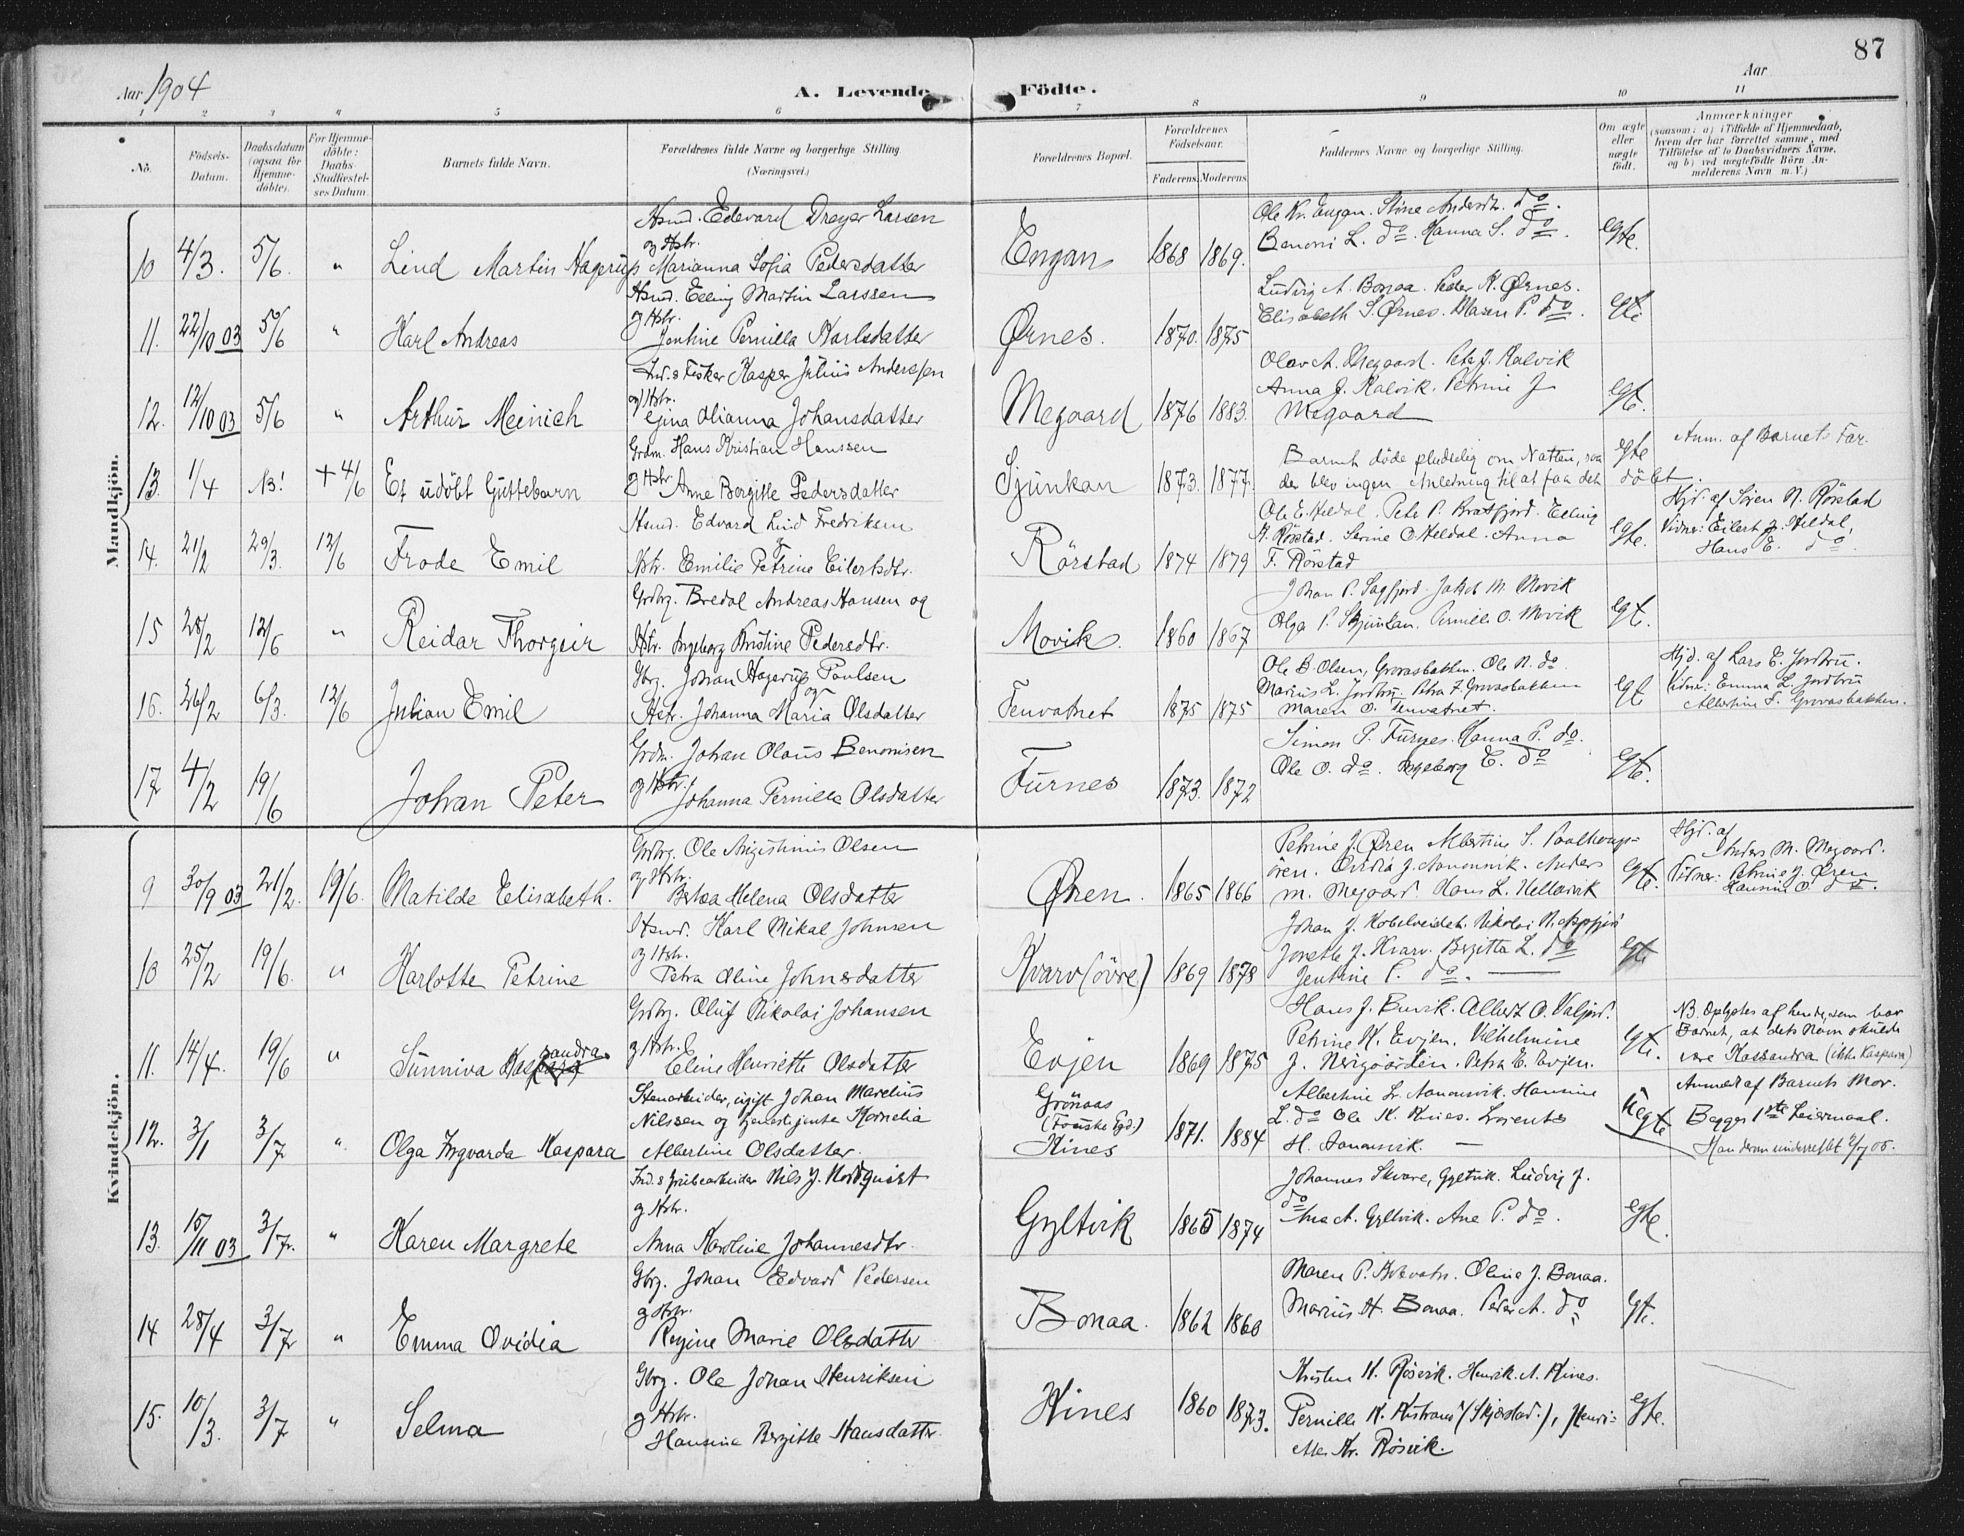 87
Aar 1904
A. Levende Födte.
Aar
1 2 3 4 5 6 7 8 9 10 11
No.
Födsels-Datum.
Daabsdatum (ogsaa for Hjemme-döbte).
For Hjemme-döbte: Daabs Stadfæstel-ses Datum.
Barnets fulde Navn.
Forældrenes fulde Navne og borgerlige Stilling (Næringsvei.)
Forældrenes Bopæl.
Forældrenes Födselsaar.
Faderens. Moderens.
Faddernes Navne og borgerlige Stilling.
Om ægte eller uægte födt.
Anmærkninger
(saasom: a) i Tilfælde af Hjemmedaab, hvem der har forrettet samme, med Tilföielse af to Daabsvidners Navne, og b) ved uægtefödte Börn An-melderens Navn m. V.)
Mandkjön.
10 4/3. 5/6. " Lind Martin Hagerup
Hsmd. Edevard Dreyer Larsen
og Hstr.
Marianna Sofia Pedersdatter
Engan 1868 1869.
Ole Kr. Engan. Stine Andersd. do.
Benoni L. do. Hanna S. do.
egte.
11. 22/10 03 5/6 " Karl Andreas
Hsmd. Elling Martin Larssen
og Hstr.
Jentine Pernilla Karlsdatter
Ørnes. 1870. 1875
Ludvig A. Bonaa. Peder K. Ørnes.
Elisabeth S. Ørnes. Maren P. do.
egte
12. 12/10 03 5/6 " Arthur Meinich
Ind. & Fisker Kasper Julius Anderssen
og Hstr.
Gina Olianna Johansdatter
Megaard 1876 1883.
Olav A. Megaard. Peter J. Kalvik
Anna J. Kalvik. Petrine J
Megaard
egte.
13. 1/4 NB! + 4/6 Et udöbt Guttebarn
Grdm. Hans Kristian Hanssen
og Hstr
Anne Bergitte Pedersdatter
Sjunkan 1873. 1877.
Barnet döde pludselig om Natten, saa
der blev ingen Anledning til at faa det döbt.
egte
Anm. af Barnets Far.
14. 21/2 29/3. 12/6 Frode Emil
Hsmd. Edvard Lind Fredriksen
og
Hstr. Emilie Petrine Eilertsdtr.
Rörstad 1874 1879
Ole E. Heldal. Peter P. Bratfjord. Elling
K. Rörstad. Serine O. Heldal. Anna
F. Rörstad
egte.
Hjd. af Sören N. Rörstad
Vidner: Eilert J. Heldal,
Hans E. do.
15 28/2 12/6 " Reidar Thorgeir
Grdbrg. Bredal Andreas Hansen og
Hstr. Ingeborg Kristine Pedersdtr.
Movik. 1860 1867
Johan P. Sagfjord. Jakob M. Movik
Olga P. Skjunkan. Pernille O. Movik
egt.
16. 26/2 6/3. 12/6 Julian Emil
Gbrg. Johan Hagerup Paulsen
og
Hstr. Johanna Maria Olsdatter
Fenvatnet 1875 1875
Ole B. Olsen, Grovasbakken. Ole N. do.
Marius L. Jordbru. Petra F. Grovasbakken
Maren O. Fenvatnet.
egt
Hjd. af Lars E. Jordbru.
Vidner: Emma L. Jordbru
Albertine F. Grovasbakken.
17 4/2 19/6 Johan Peter
Grdm. Johan Olaus Benonisen
og Hstr.
Johanna Pernilla Olsdatter
Furnes 1873. 1872
Simon P. Furnes. Hanna P. do.
Ole O. do. Ingeborg E. do
egte.
Kvindekjön.
9 30/9 03 21/2. 19/6. Matilde Elisabeth.
Grdbrg. Ole Augustinus Olsen
og Hstr.
Berhea Helena Olsdatter
Øren. 1865 1866
Petrine J. Øren Albertine S. Paulkamp-
ören. Ovidia J. Aanonsvik. Anders
M. Megaard. Hans L. Hellarvik
egte.
Hjd. af
Anders M. Megaard.
Vidner: Petrine J. Øren
Hansine O. do.
10 25/2 19/6. " Karlotte Petrine
Hsmd. Karl Mikal Johnsen
og Hstr.
Petra Oline Johnsdatter
Kvarv (övre) 1869 1878
Johan J. Kobelveidet. Nikolai N.
Josette J. Kvarv. Bergitta L. do
Jentine P. do.
egte
11. 14/4. 19/6 " Sunniva Kassandra
Grdbrg. Oluf Nikolai Johansen
og Hstr.
Eline Henriette Olsdatter
Evjen 1869 1875
Hans J. Burvik. Albert O. Valjord.
Petrine K. Evjen. Vilhelmine
J. Nerigaarden. Petra E. Evjen.
egte.
NB. Oplystes af hende, som bar
Barnet, at dets Navn skulde
være Kassandra (ikke Kaspara)
12. 3/1 3/7 " Olga Ingvarda Kaspara
Stenarbeider, ugift Johan Marelius
Nilssen og tjenestejente Kornelia
Albertine Olsdatter.
Grönaas
(Fauske Egd.)
Hines
1871. 1884
Albertine Aanonsvik. Hansine
L. do Ole K. Hines. Lorents
H. Aanonsvik.
Uegte
Anmeldt af Barnets Mor.
Begges 1ste Leiermaal.
Manden underrettet 2/7 05.
13. 15/11 03 3/7. " Karen Margrete
Ind. & Grubearbeider Nils J. Nordquist
og Hstr.
Anna Karoline Johannesdtr.
Gyltvik 1865 1874
Johannes Skvare, Gyltvik. Ludvig J.
do
Ane A. Gyltvik. Ane P. do.
egte.
14 28/4 3/7 " Emma Ovidia
Gbrg. Johan Edvard Pedersen
og Hstr.
Regine Marie Olsdatter
Bonaa. 1862 1860
Maren P. Oline J. Bonaa.
Marius H. Bonaa. Peder A. do
egte.
15. 10/3. 3/7 " Selma
Gbrg. Ole Johan Henriksen
og Hstr.
Hansina Bergitte Hansdatter
Hines 1860 1873.
Kristen K. Rösvik. Henrik A. Hines.
Pernille K. (Skjerstad.), Henri-
ette Kr. Rösvik.
egte.